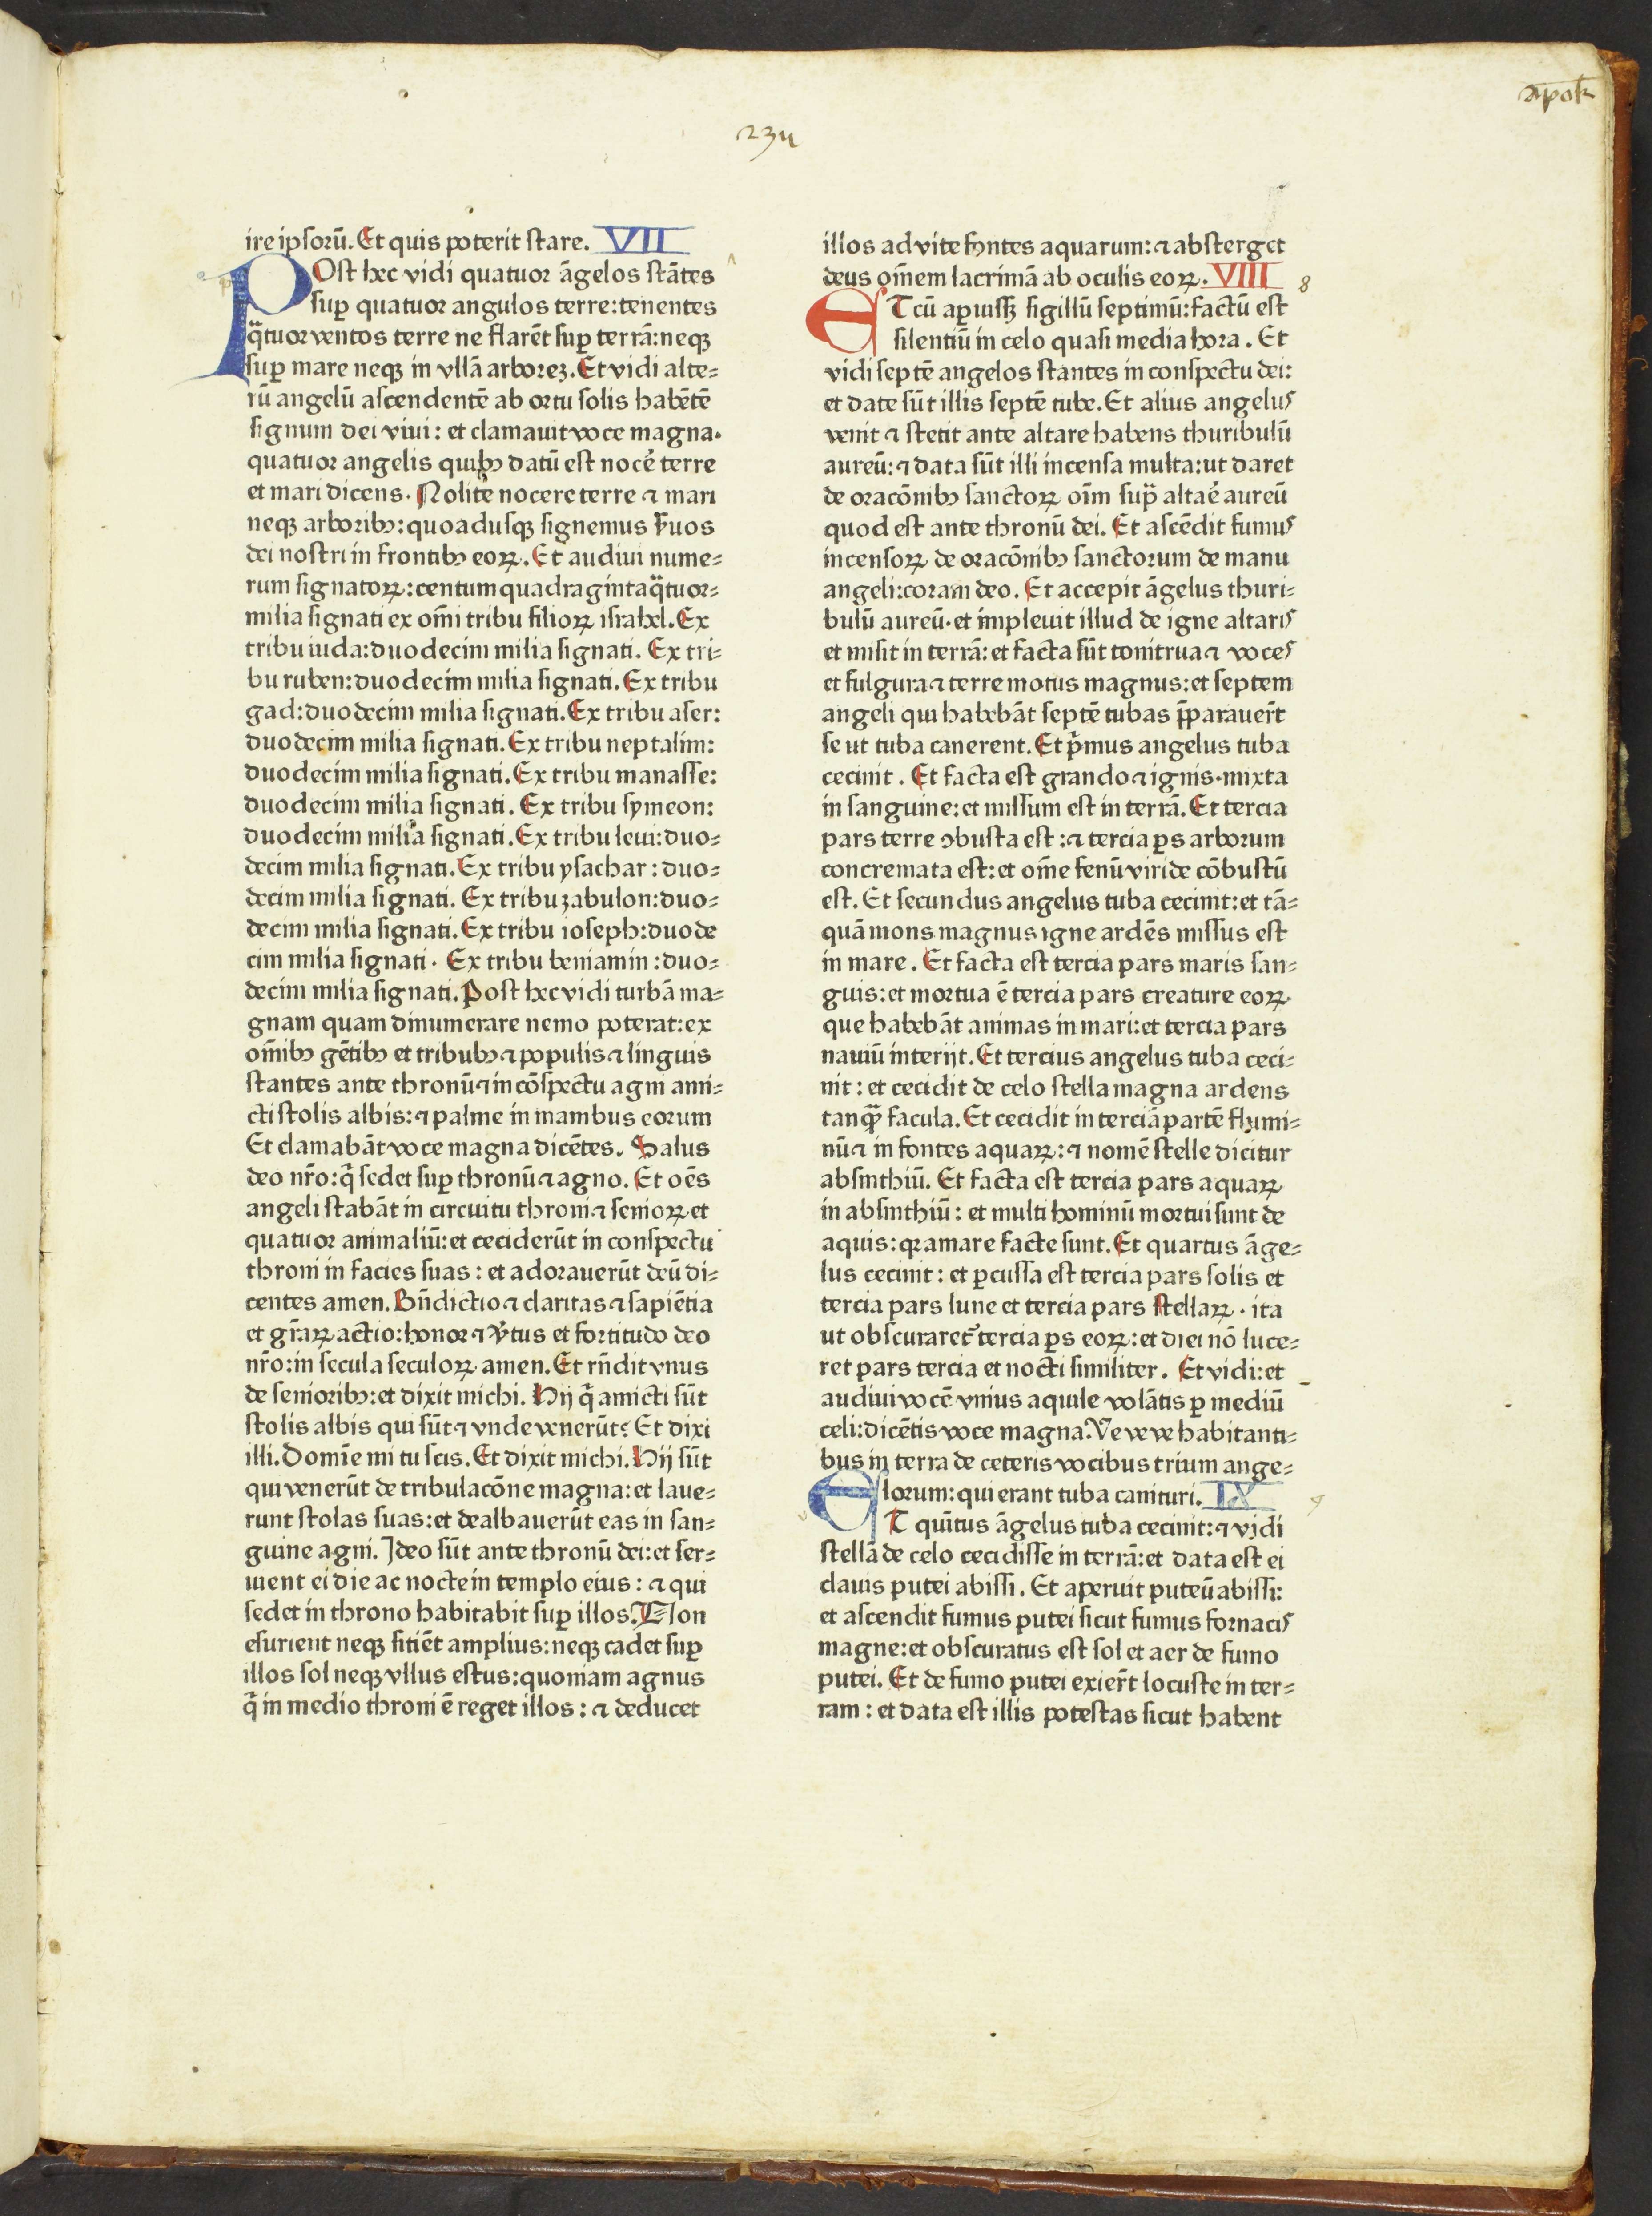 apok
234
ire ipsorū. Et quis poterit stare. VII
POst hec vidi quatuor āgelos stātes
sup̱ quatuor angulos terre: tenentes
q̈tuor ventos terre ne flarēt sup̱ terrā: neqꝫ
sup̱ mare neqꝫ in vllā arboreꝫ. Et vidi alte⸗
rū angelū ascendentē ab ortu solis habētē
signum dei viui: et clamauit voce magna.
quatuor angelis quibꝰ datū est nocē terre
et mari dicens. Nolite nocere terre ⁊ mari
neqꝫ arboribꝰ: quoadusqꝫ signemus ẜuos
dei nostri in frontibꝰ eoꝝ. Et audiui nume⸗
rum signatoꝝ: centum quadraginta q̈tuor⸗
milia signati ex om̄i tribu filioꝝ israhel. Ex
tribu iuda: duodecim milia signati. Ex tri⸗
bu ruben: duodecim milia signati. Ex tribu
gad: duodecim milia signati. Ex tribu aser:
duodecim milia signati. Ex tribu neptalim:
duodecim milia signati. Ex tribu manasse:
duodecim milia signati. Ex tribu symeon:
duodecim milia signati. Ex tribu leui: duo⸗
decim milia signati. Ex tribu ysachar: duo⸗
decim milia signati. Ex tribu zabulon: duo⸗
decim milia signati. Ex tribu ioseph: duode
cim milia signati. Ex tribu beniamin: duo⸗
decim milia signati. Post hec vidi turbā ma⸗
gnam quam dinumerare nemo poterat: ex
om̄ibꝰ gētibꝰ et tribubꝰ ⁊ populis ⁊ linguis
stantes ante thronū ⁊ in cōspectu agni ami⸗
cti stolis albis: ⁊ palme in manibus eorum
Et clamabāt voce magna dicētes. Salus
deo nr̄o: q̄ sedet sup̱ thronū ⁊ agno. Et oēs
angeli stabāt in circuitu throni ⁊ senioꝝ et
quatuor animaliū: et ceciderūt in conspectu
throni in facies suas: et adorauerūt deū di⸗
centes amen. Bn̄dictio ⁊ claritas ⁊ sapiētia
et gr̄aꝝ actio: honor ⁊ v̄tus et fortitudo deo
nr̄o: in secula seculoꝝ amen. Et rn̄dit vnus
de senioribꝰ: et dixit michi. Hij q̄ amicti sūt
stolis albis qui sūt ⁊ vnde venerūt? Et dixi
illi. Domīe mi tu scis. Et dixit michi. Hij sūt
qui venerūt de tribulacōne magna: et laue⸗
runt stolas suas: et dealbauerūt eas in san⸗
guine agni. Ideo sūt ante thronū dei: et ser⸗
uient ei die ac nocte in templo eius: ⁊ qui
sedet in throno habitabit sup̱ illos. Non
esurient neqꝫ sitiēt amplius: neqꝫ cadet sup̱
illos sol neqꝫ vllus estus: quoniam agnus
q̄ in medio throni ē reget illos: ⁊ deducet
illos ad vite fontes aquarum: ⁊ absterget
deus om̄em lacrimā ab oculis eoꝝ. VIII 8
ET cū ap̱uissꝫ sigillū septimū: factū est
silentiū in celo quasi media hora. Et
vidi septē angelos stantes in conspectu dei:
et date sūt illis septē tube. Et alius angelus
venit ⁊ stetit ante altare habens thuribulū
aureū: ⁊ data sūt illi incensa multa: ut daret
de oracōnibꝰ sanctoꝝ oīm sup̄ altaē aureū
quod est ante thronū dei. Et ascēdit fumus
incensoꝝ de oracōnibꝰ sanctorum de manu
angeli: coram deo. Et accepit āgelus thuri⸗
bulū aureū. et impleuit illud de igne altaris
et misit in terrā: et facta sūt tonitrua ⁊ voces
et fulgura ⁊ terremotus magnus: et septem
angeli qui habebāt septē tubas p̄parauer̄t
se ut tuba canerent. Et p̄mus angelus tuba
cecinit. Et facta est grando ⁊ ignis. mixta
in sanguine: et missum est in terrā. Et tercia
pars terre ↄbusta est: ⁊ tercia p̱s arborum
concremata est: et om̄e fenū viride cōbustū
est. Et secundus angelus tuba cecinit: et tā⸗
quā mons magnus igne ardēs missus est
in mare. Et facta est tercia pars maris san⸗
guis: et mortua ē tercia pars creature eoꝝ
que habebāt animas in mari: et tercia pars
nauiū interijt. Et tercius angelus tuba ceci⸗
nit: et cecidit de celo stella magna ardens
tanq̈ facula. Et cecidit in terciā partē flumi⸗
nū ⁊ in fontes aquaꝝ: ⁊ nomē stelle dicitur
absinthiū. Et facta est tercia pars aquaꝝ
in absinthiū: et multi hominū mortui sunt de
aquis: qꝛ amare facte sunt. Et quartus āge⸗
lus cecinit: et p̱cussa est tercia pars solis et
tercia pars lune et tercia pars stellaꝝ. ita
ut obscuraret᷑ tercia p̱s eoꝝ: et diei nō luce⸗
ret pars tercia et nocti similiter. Et vidi: et
audiui vocē vnius aquile volātis p̱ mediū
celi: dicētis voce magna. Ve ve ve habitanti⸗
bus in terra de ceteris vocibus trium ange⸗
lorum: qui erant tuba canituri. IX 9
ET quītus āgelus tuba cecinit: ⁊ vidi
stellā de celo cecidisse in terrā: et data est ei
clauis putei abissi. Et aperuit puteū abissi:
et ascendit fumus putei sicut fumus fornacis
magne: et obscuratus est sol et aer de fumo
putei. Et de fumo putei exier̄t locuste in ter⸗
ram: et data est illis potestas sicut habent